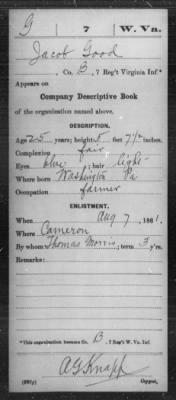 G 7 W. Va.
Jacob Good
, Co. B, 7 Reg't Virginia Inf.*
Appears on
Company Descriptive Book
of the organization named above.
DESCRIPTION.
Age 25 years; height 5 feet 7½ inches
Complexion fair
Eyes Blue; hair light
Where born Washington Pa
Occupation farmer
ENLISTMENT.
When Aug 7, 1861.
Where Cameron
By whom Thomas Morris; term 3 y'rs.
Remarks:
*This organization became Co. B, 7 Reg't W. Va. Inf.
A G Knapp
Copyist.